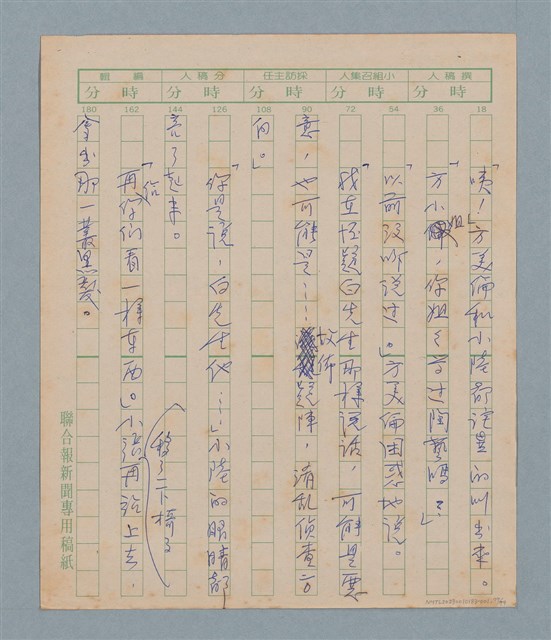 輯編 人稿分 任主訪採 人集召組小 人稿撰
分 時 分 時 分 時
180 162 144 126 108 90 72 54 36 18
「咦！」方美倫和小陸都詫異的叫出來。
「方小姐，你姐々學過陶藝嗎？」
「以前沒聽說過。」方美倫困惑地說。
「我在懷疑白先生那樣說話，可能是惡
意，也可能是……故佈疑陣，淆亂偵查方
向。」
「你是說，白先生他…」小陸的眼睛都
亮了起來。
「再給你們看一樣東西。」小張再
拿出那一叢黑髮。
聯合報新聞專用稿紙